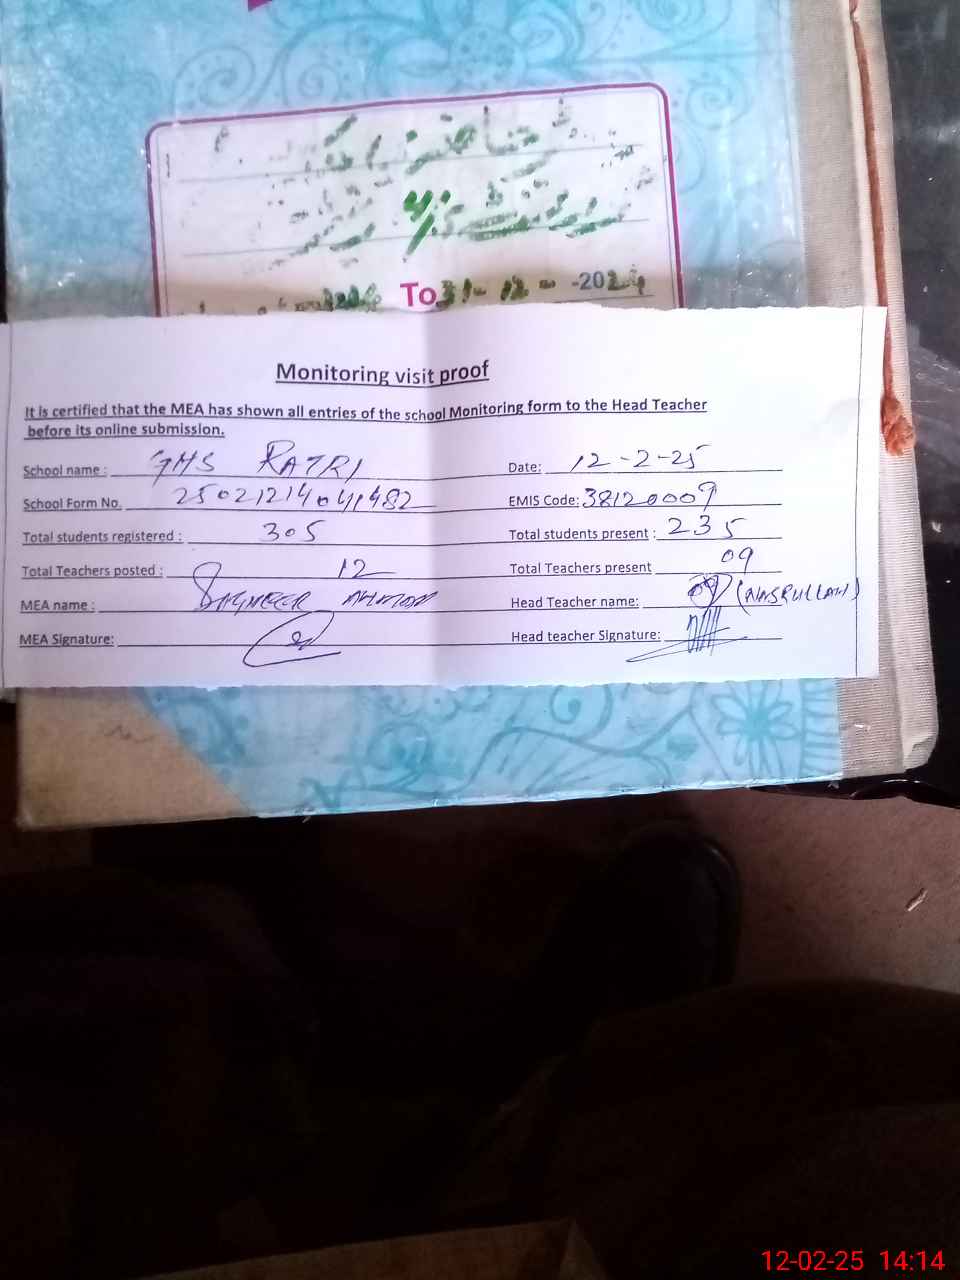 To 31-12- -2024
Monitoring visit proof
It is certified that the MEA has shown all entries of the school Monitoring form to the Head Teacher
before its online submission.
School name : GHS RATRI Date: 12-2-25
School Form No. 25021214041482 EMIS Code: 38120009
Total students registered : 305 Total students present : 235
Total Teachers posted : 12 Total Teachers present 09
MEA name : AHMAD Head Teacher name: (NASRULLAH)
MEA Signature: Head teacher Signature:
12-02-25 14:14